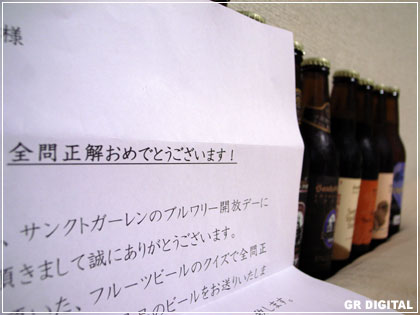 様
全問正解おめでとうございます！
、サンクトガーレンのブルワリー開放デーに
頂きまして誠にありがとうございます。
いた、フルーツビールのクイズで全問正
のビールをお送りいたしま
します。
GR DIGITAL